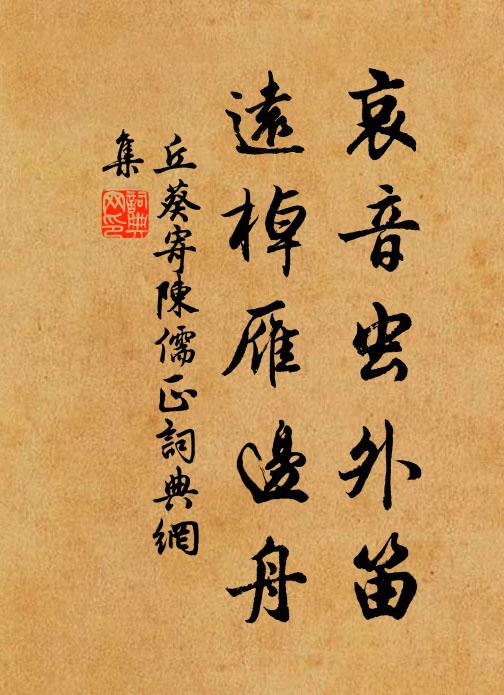 哀音虫外笛
遠棹雁邊舟
丘葵寄陳儒正詞典網
集
詞典
网印